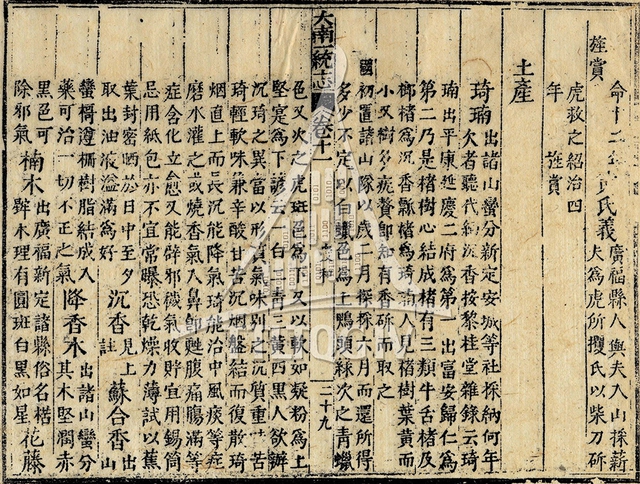 命十二年
旌賞
氏義
廣福縣人與夫入山採薪
夫為虎所攫氏以柴刀斫
虎救之紹治四
年旌賞
土產
琦瑀出諸山蠻分新定安城等社採納何年
欠者聽代納沉香按黎桂堂雜錄云琦
瑀出平康延慶二府為第一出富安歸仁為
第二乃是楮樹心結成楮有三類牛舌楮及
楮為沉香瓢楮為琦瑀人見楮樹葉黃而
小又樹多疣贅卽知有香斫而取之
國初置諸山隊以歲二月採採六月而還所得
多少不定以白蠟色為上鴨頭綠次之青蠟
大南一統志 卷十一 二十九
色又次之虎斑色為下又以軟如凝粉為上
堅寔為下諺云一白二青三黃四黑人欲辦
沉琦之異當以形質氣味別之沉質重味苦
琦輕軟味兼辛酸甘苦沉烟盤結而復散琦
烟直上而長沉能降氣琦能治中風痰等症
磨水灌之或燒香氣入鼻卽甦腹痛腸滿等
症含化立愈又能辟邪穢氣收貯宜用錫筒
忌用紙包亦不宜常曝恐乾燥力薄試以蕉
葉封密晒於日中至夕
取出油液溢滿為好
沉香
見上
註
蘇合香
出
山
蠻楊遵樹樹脂結成入
藥可治一切不正之氣
降香木
出諸山蠻分
其木堅潤赤
黑色可
除邪氣
楠木
出廣福新定諸縣俗名楛
鉡木理有圓斑白黑如星
花藤